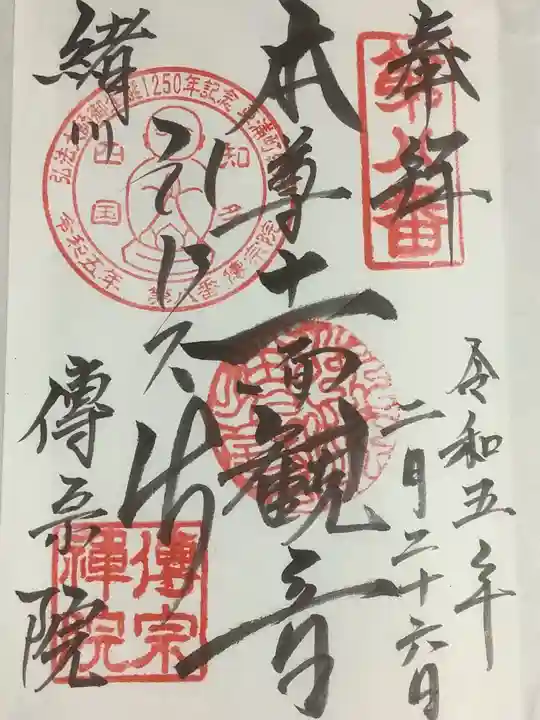 奉拝
第八番
令和五年
二月二十六日
本尊十一面観音
弘法大師御生誕1250年記念
知多
西国
令和五年
第八番 傳宗院
緒川
傳宗院
傳宗
禅院